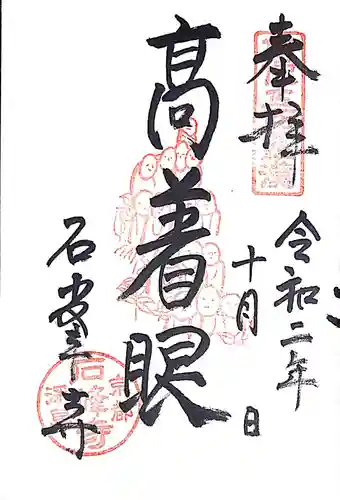 奉拝
令和二年
十月 日
高着眼
石峯寺
京都
深草
石峰寺